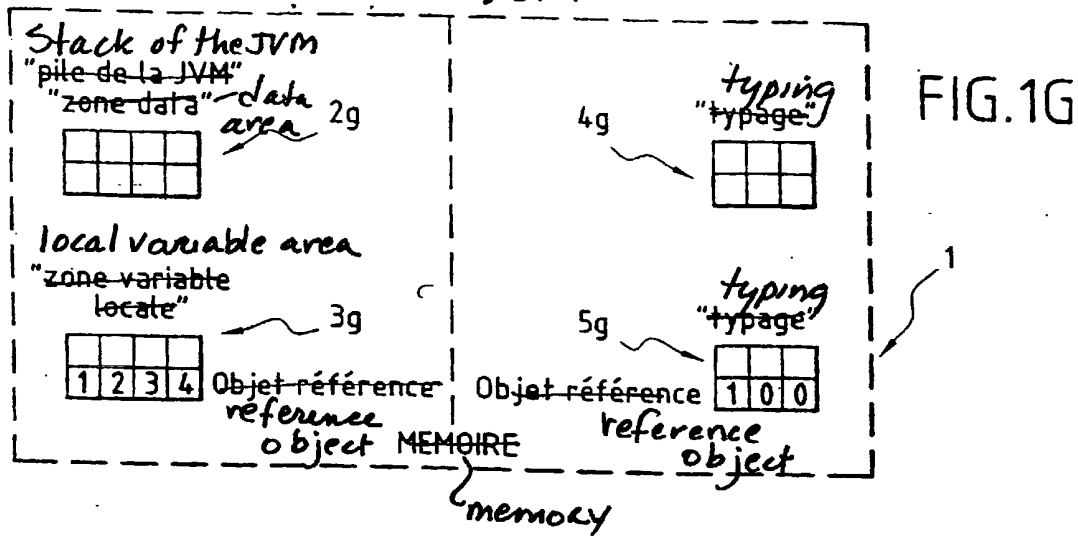 Stack of the JVM
"pile de la JVM"
"zone data" data
area
2g
local variable area
"zone variable
locale"
3g
1 2 3 4 Objet référence
reference
object MEMOIRE
memory
typing
"typage"
4g
typing
"typage"
5g
Objet référence 1 0 0
reference
object
1
FIG.1G